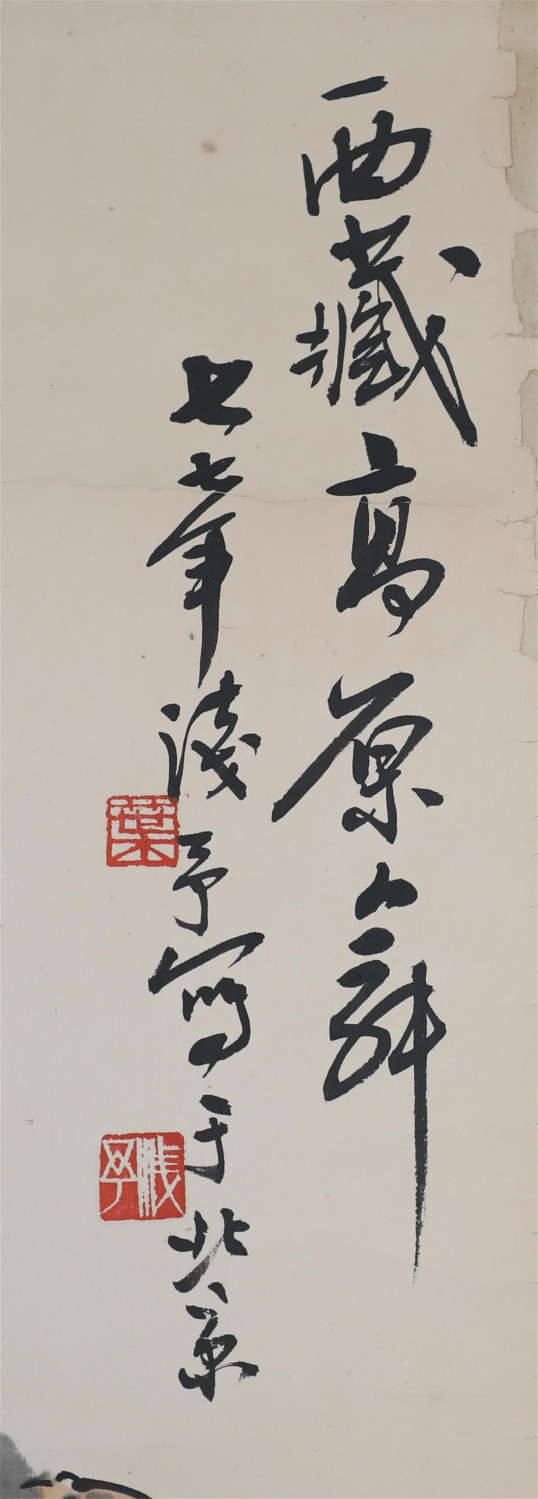 西藏高原之舞
七七年浅予写于北京
葉
淺予